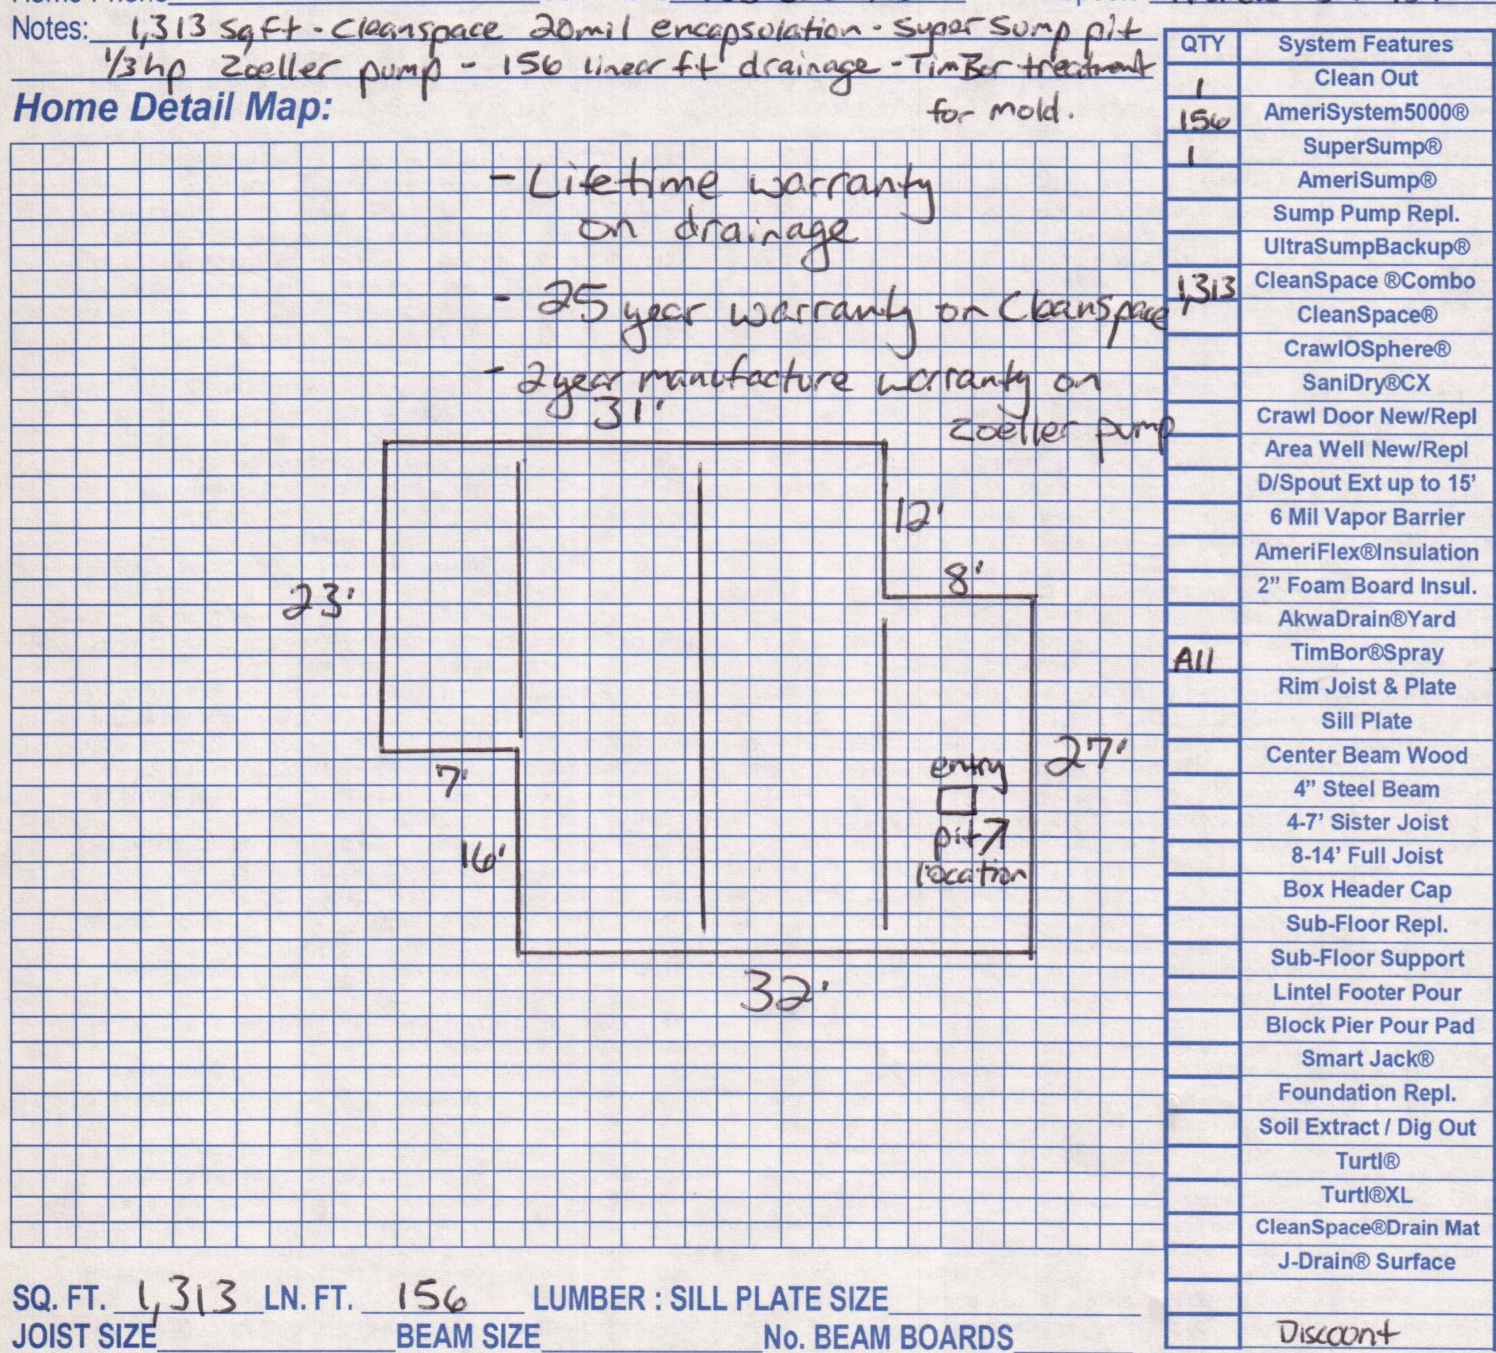 Notes: 1,313 sqft - Cleanspace 20mil encapsolation - Super Sump pit
1/3 hp Zoeller pump - 156 linear ft drainage - TimBor treatment
for mold.
Home Detail Map:
- Lifetime warranty
on drainage
- 25 year warranty on Cleanspace
- 2 year manufacture warranty on
zoeller pump
31'
12'
8'
23'
27'
7'
16'
entry
pit
location
32'
QTY System Features
1 Clean Out
156 AmeriSystem5000®
1 SuperSump®
AmeriSump®
Sump Pump Repl.
UltraSumpBackup®
1,313 CleanSpace ®Combo
CleanSpace®
CrawlOSphere®
SaniDry®CX
Crawl Door New/Repl
Area Well New/Repl
D/Spout Ext up to 15'
6 Mil Vapor Barrier
AmeriFlex®Insulation
2” Foam Board Insul.
AkwaDrain®Yard
All TimBor®Spray
Rim Joist & Plate
Sill Plate
Center Beam Wood
4” Steel Beam
4-7’ Sister Joist
8-14’ Full Joist
Box Header Cap
Sub-Floor Repl.
Sub-Floor Support
Lintel Footer Pour
Block Pier Pour Pad
Smart Jack®
Foundation Repl.
Soil Extract / Dig Out
Turtl®
Turtl®XL
CleanSpace®Drain Mat
J-Drain® Surface
Discount
SQ. FT. 1,313 LN. FT. 156 LUMBER : SILL PLATE SIZE
JOIST SIZE BEAM SIZE No. BEAM BOARDS